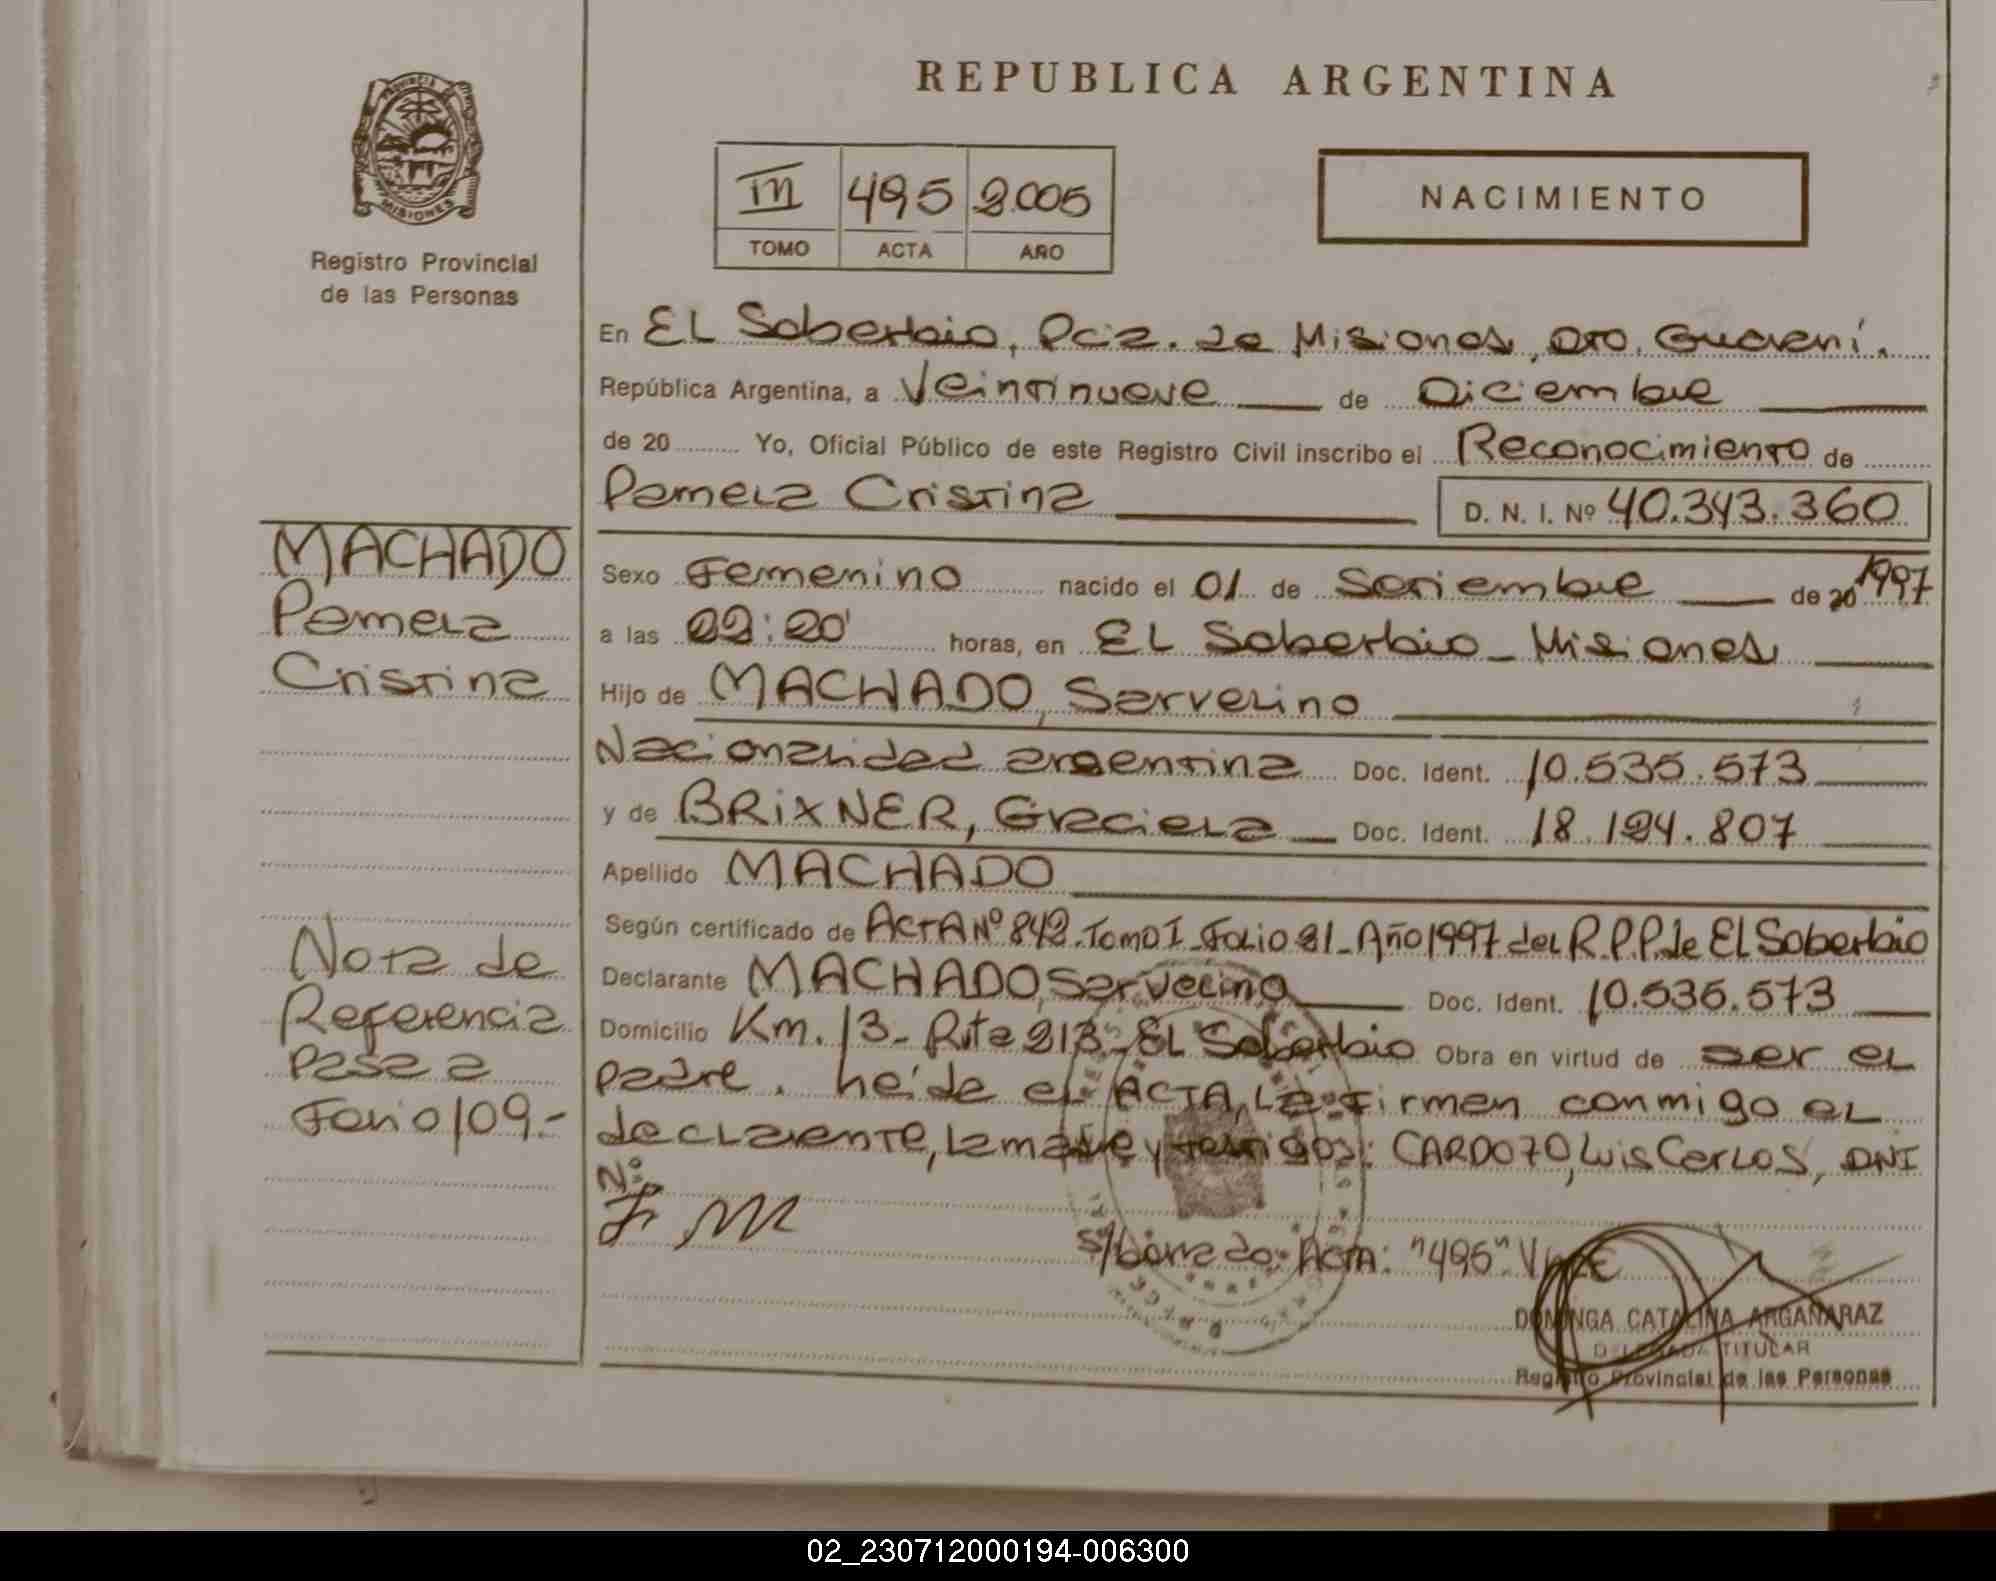 REPUBLICA ARGENTINA
PROVINCIA DE
MISIONES
Registro Provincial
de las Personas
III 495 2.005
TOMO ACTA AÑO
NACIMIENTO
En EL Soberbio, Pcia. de Misiones, Dto. Guaraní.
República Argentina, a Veintinueve de Diciembre
de 20 Yo, Oficial Público de este Registro Civil inscribo el Reconocimiento de
Pamela Cristina D. N. I. Nº 40.343.360
MACHADO
Pamela
Cristina
Sexo Femenino nacido el 01 de Setiembre de 20 1997
a las 22:20' horas, en EL Soberbio - Misiones
Hijo de MACHADO, Servelino
Nacionalidad argentina Doc. Ident. 10.535.573
y de BRIXNER, Graciela Doc. Ident. 18.124.807
Apellido MACHADO
Según certificado de ACTA Nº 842. Tomo I - Folio 21 - Año 1997 del R.P.P. de EL Soberbio
Declarante MACHADO, Servelino Doc. Ident. 10.535.573
Domicilio Km. 13 - Rita 213 - EL Soberbio Obra en virtud de ser el
padre. Leída el ACTA, La firman conmigo el
declarante, la madre y testigos: CARDOZO, Luis Carlos, DNI
Nº:
Nota de
Referencia
Pasa a
Folio 109.-
S/borrado: Acta: "495" Vale
DOMINGA CATALINA ARGAÑARAZ
DELEGADA TITULAR
Registro Provincial de las Personas
02_230712000194-006300